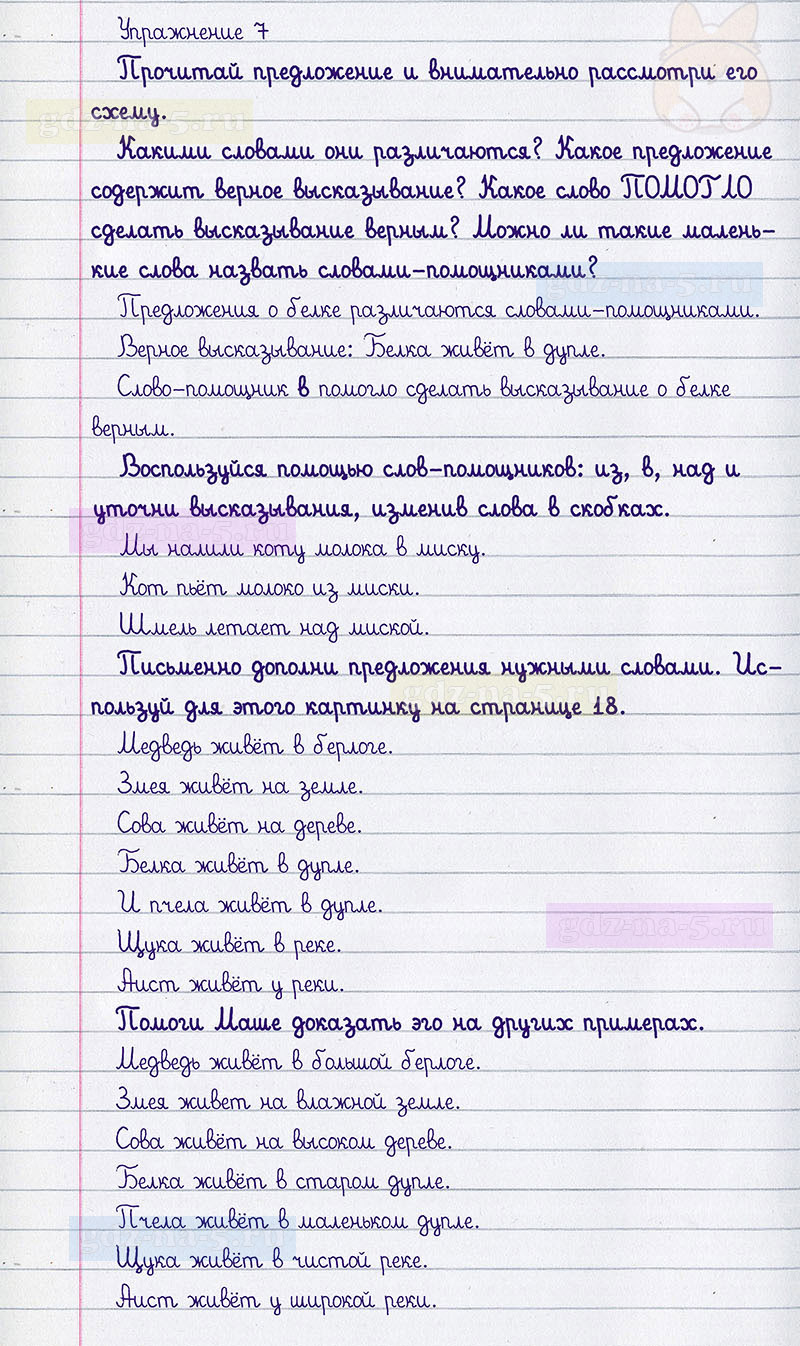 Упражнение 7
Прочитай предложение и внимательно рассмотри его
схему.
gdz-na-5.ru
Какими словами они различаются? Какое предложение
содержит верное высказывание? Какое слово ПОМОГЛО
сделать высказывание верным? Можно ли такие малень-
кие слова назвать словами-помощниками?
gdz-na-5.ru
Предложения о белке различаются словами-помощниками.
Верное высказывание: Белка живёт в дупле.
Слово-помощник в помогло сделать высказывание о белке
верным.
Воспользуйся помощью слов-помощников: из, в, над и
уточни высказывания, изменив слова в скобках.
gdz-na-5.ru
Мы налили коту молока в миску.
Кот пьёт молоко из миски.
Шмель летает над миской.
Письменно дополни предложения нужными словами. Ис-
gdz-na-5.ru
пользуй для этого картинку на странице 18.
Медведь живёт в берлоге.
Змея живёт на земле.
Сова живёт на дереве.
Белка живёт в дупле.
И пчела живёт в дупле.
gdz-na-5.ru
Щука живёт в реке.
Аист живёт у реки.
Помоги Маше доказать эго на других примерах.
Медведь живёт в большой берлоге.
Змея живет на влажной земле.
Сова живёт на высоком дереве.
Белка живёт в старом дупле.
Пчела живёт в маленьком дупле.
gdz-na-5.ru
Щука живёт в чистой реке.
Аист живёт у широкой реки.